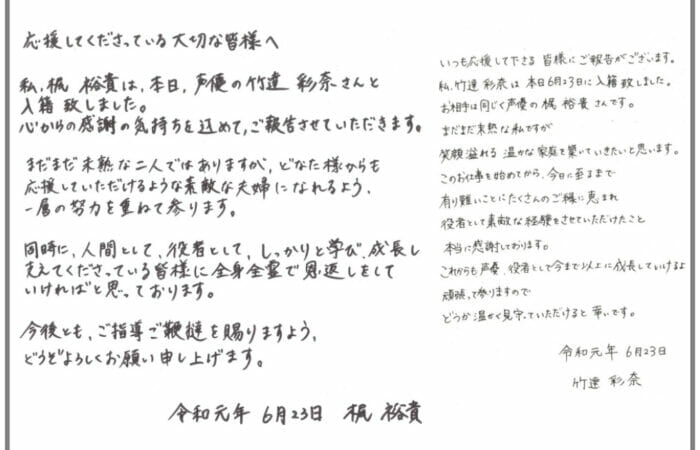 応援してくださっている大切な皆様へ
私、梶 裕貴は、本日、声優の竹達 彩奈さんと
入籍致しました。
心からの感謝の気持ちを込めて、ご報告させていただきます。
まだまだ未熟な二人ではありますが、どなた様からも
応援していただけるような素敵な夫婦になれるよう、
一層の努力を重ねて参ります。
同時に、人間として、役者として、しっかりと学び、成長し
支えてくださっている皆様に全身全霊で恩返しをして
いければと思っております。
今後とも、ご指導ご鞭撻を賜りますよう、
どうぞよろしくお願い申し上げます。
令和元年 6月23日 梶 裕貴
いつも応援して下さる 皆様にご報告がございます。
私、竹達 彩奈は本日6月23日に入籍致しました。
お相手は同じく声優の梶 裕貴さんです。
まだまだ未熟な私ですが
笑顔溢れる 温かな家庭を築いていきたいと思います。
このお仕事を始めてから、今日に至るまで
有り難いことにたくさんのご縁に恵まれ
役者として素敵な経験をさせていただけたこと
本当に感謝しております。
これからも声優、役者として今まで以上に成長していけるよう
頑張って参りますので
どうか温かく見守っていただけると幸いです。
令和元年 6月23日
竹達 彩奈